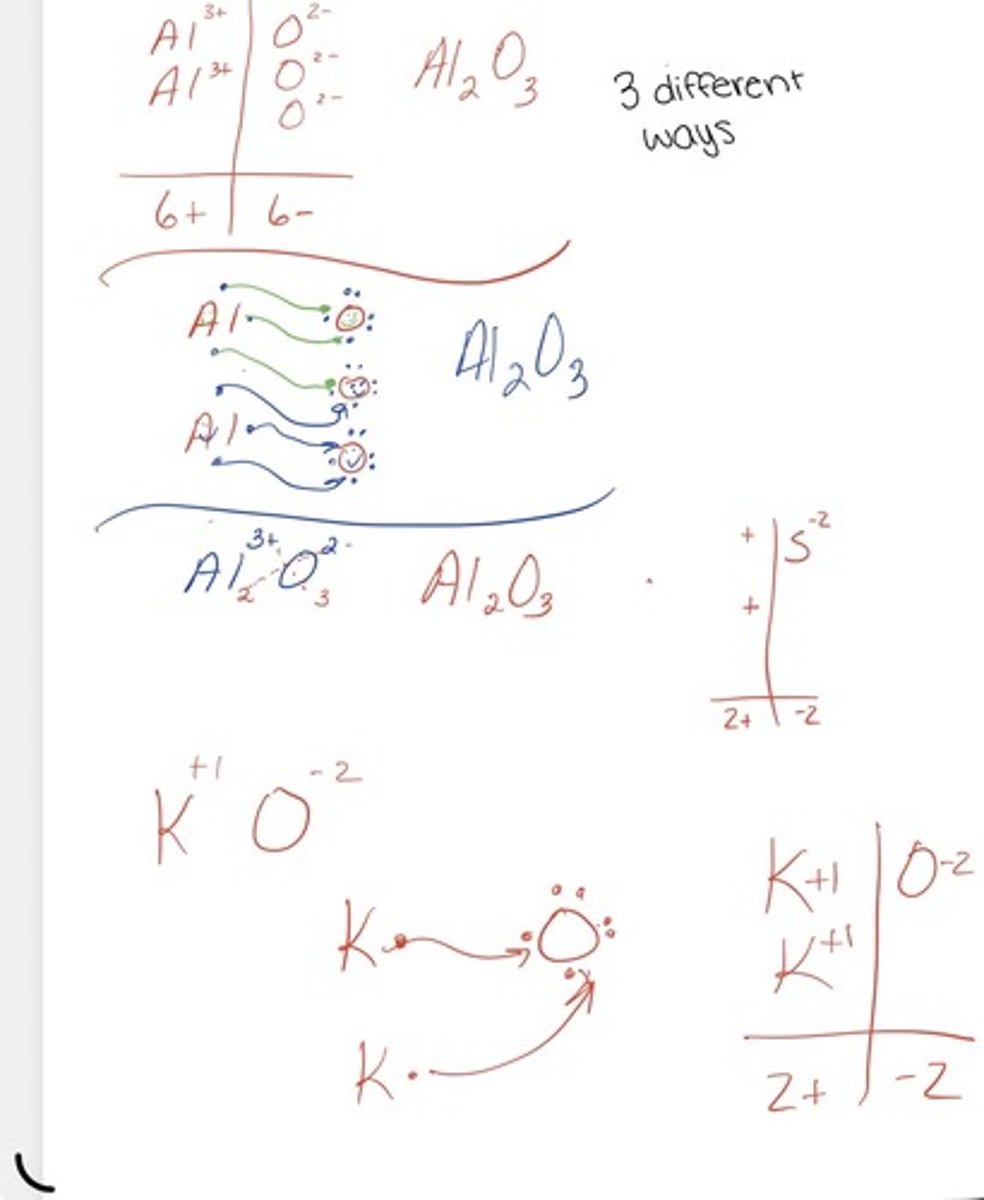 Al³⁺ O²⁻
Al³⁺ O²⁻
O²⁻
Al₂O₃
3 different
ways
6+ 6-
Al O
O
Al O
Al₂O₃
Al₂³⁺ O₃²⁻ Al₂O₃
+ S⁻²
+
2+ -2
K⁺¹ O⁻²
K O
K
K+1 O-2
K⁺¹
2+ -2